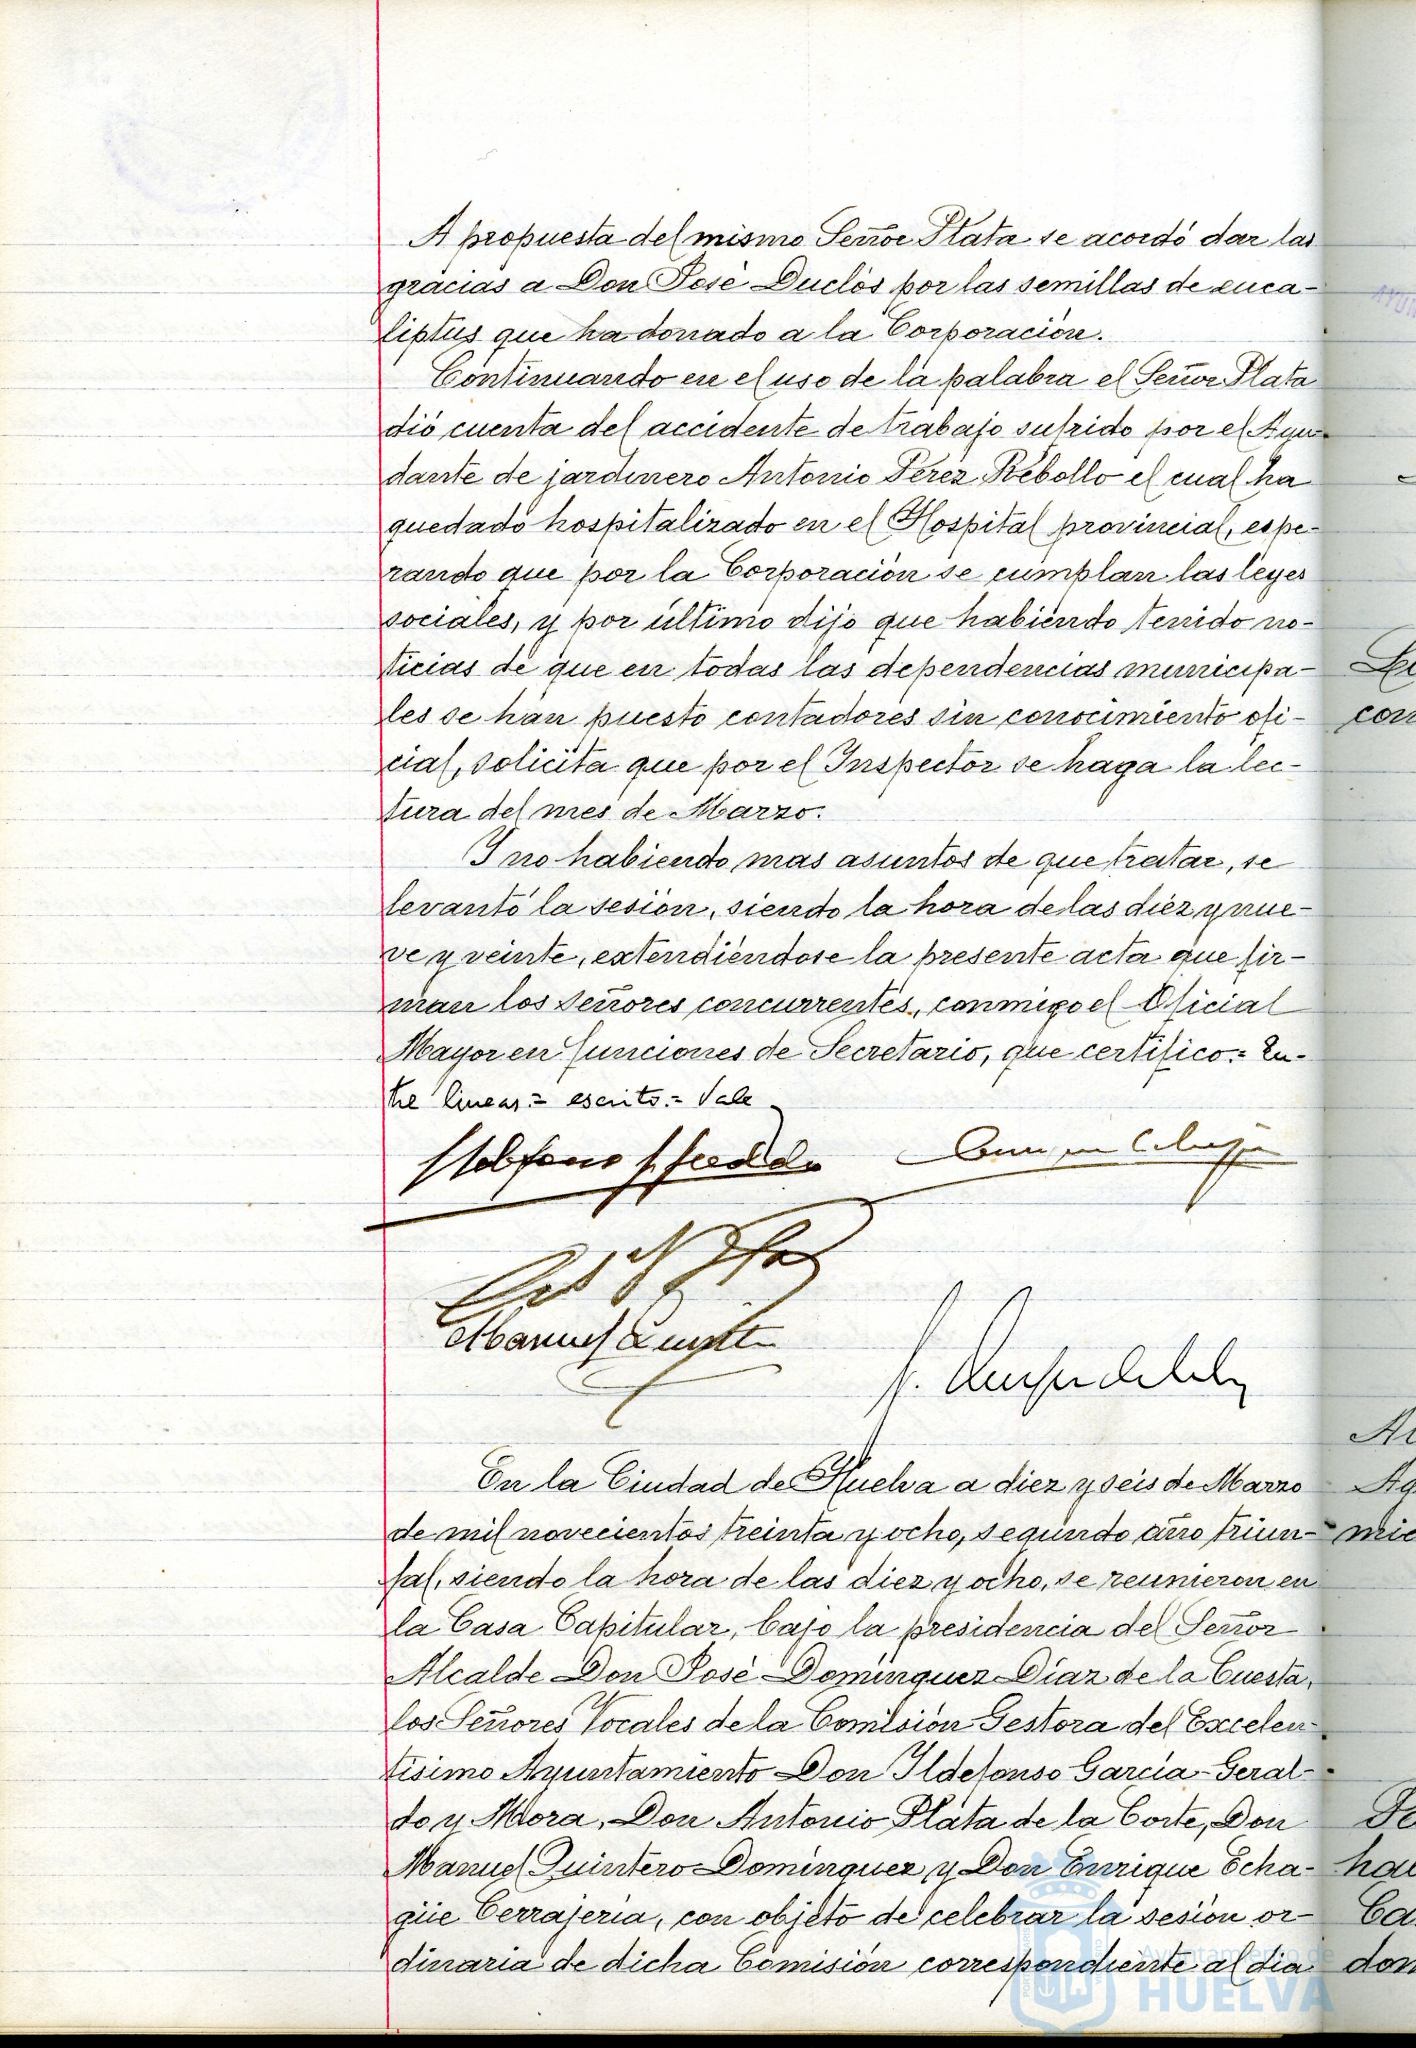 A propuesta del mismo Señor Plata se acordó dar las
gracias a Don José Duclós por las semillas de euca-
liptus que ha donado a la Corporación.
Continuando en el uso de la palabra el Señor Plata
dió cuenta del accidente de trabajo sufrido por el Ayu-
dante de jardinero Antonio Pérez Rebollo el cual ha
quedado hospitalizado en el Hospital provincial, espe-
rando que por la Corporación se cumplan las leyes
sociales, y por último dijo que habiendo tenido no-
ticias de que en todas las dependencias municipa-
les se han puesto contadores sin conocimiento ofi-
cial, solicita que por el Inspector se haga la lec-
tura del mes de Marzo.
Y no habiendo mas asuntos de que tratar, se
levantó la sesión, siendo la hora de las diez y nue-
ve y veinte, extendiéndose la presente acta que fir-
man los señores concurrentes, conmigo el Oficial
Mayor en funciones de Secretario, que certifico.= En-
tre lineas.= escrito.= Vale
Manuel Quintero
En la Ciudad de Huelva a diez y seis de Marzo
de mil novecientos treinta y ocho, segundo año triun-
fal, siendo la hora de las diez y ocho, se reunieron en
la Casa Capitular, bajo la presidencia del Señor
Alcalde Don José Dominguez Díaz de la Cuesta,
los Señores Vocales de la Comisión Gestora del Excelen-
tísimo Ayuntamiento Don Ildefonso García-Geral-
do y Mora, Don Antonio Plata de la Corte, Don
Manuel Quintero Dominguez y Don Enrique Echa-
güe Cerrajería, con objeto de celebrar la sesión or-
dinaria de dicha Comisión correspondiente al dia
Ayuntamiento de
HUELVA